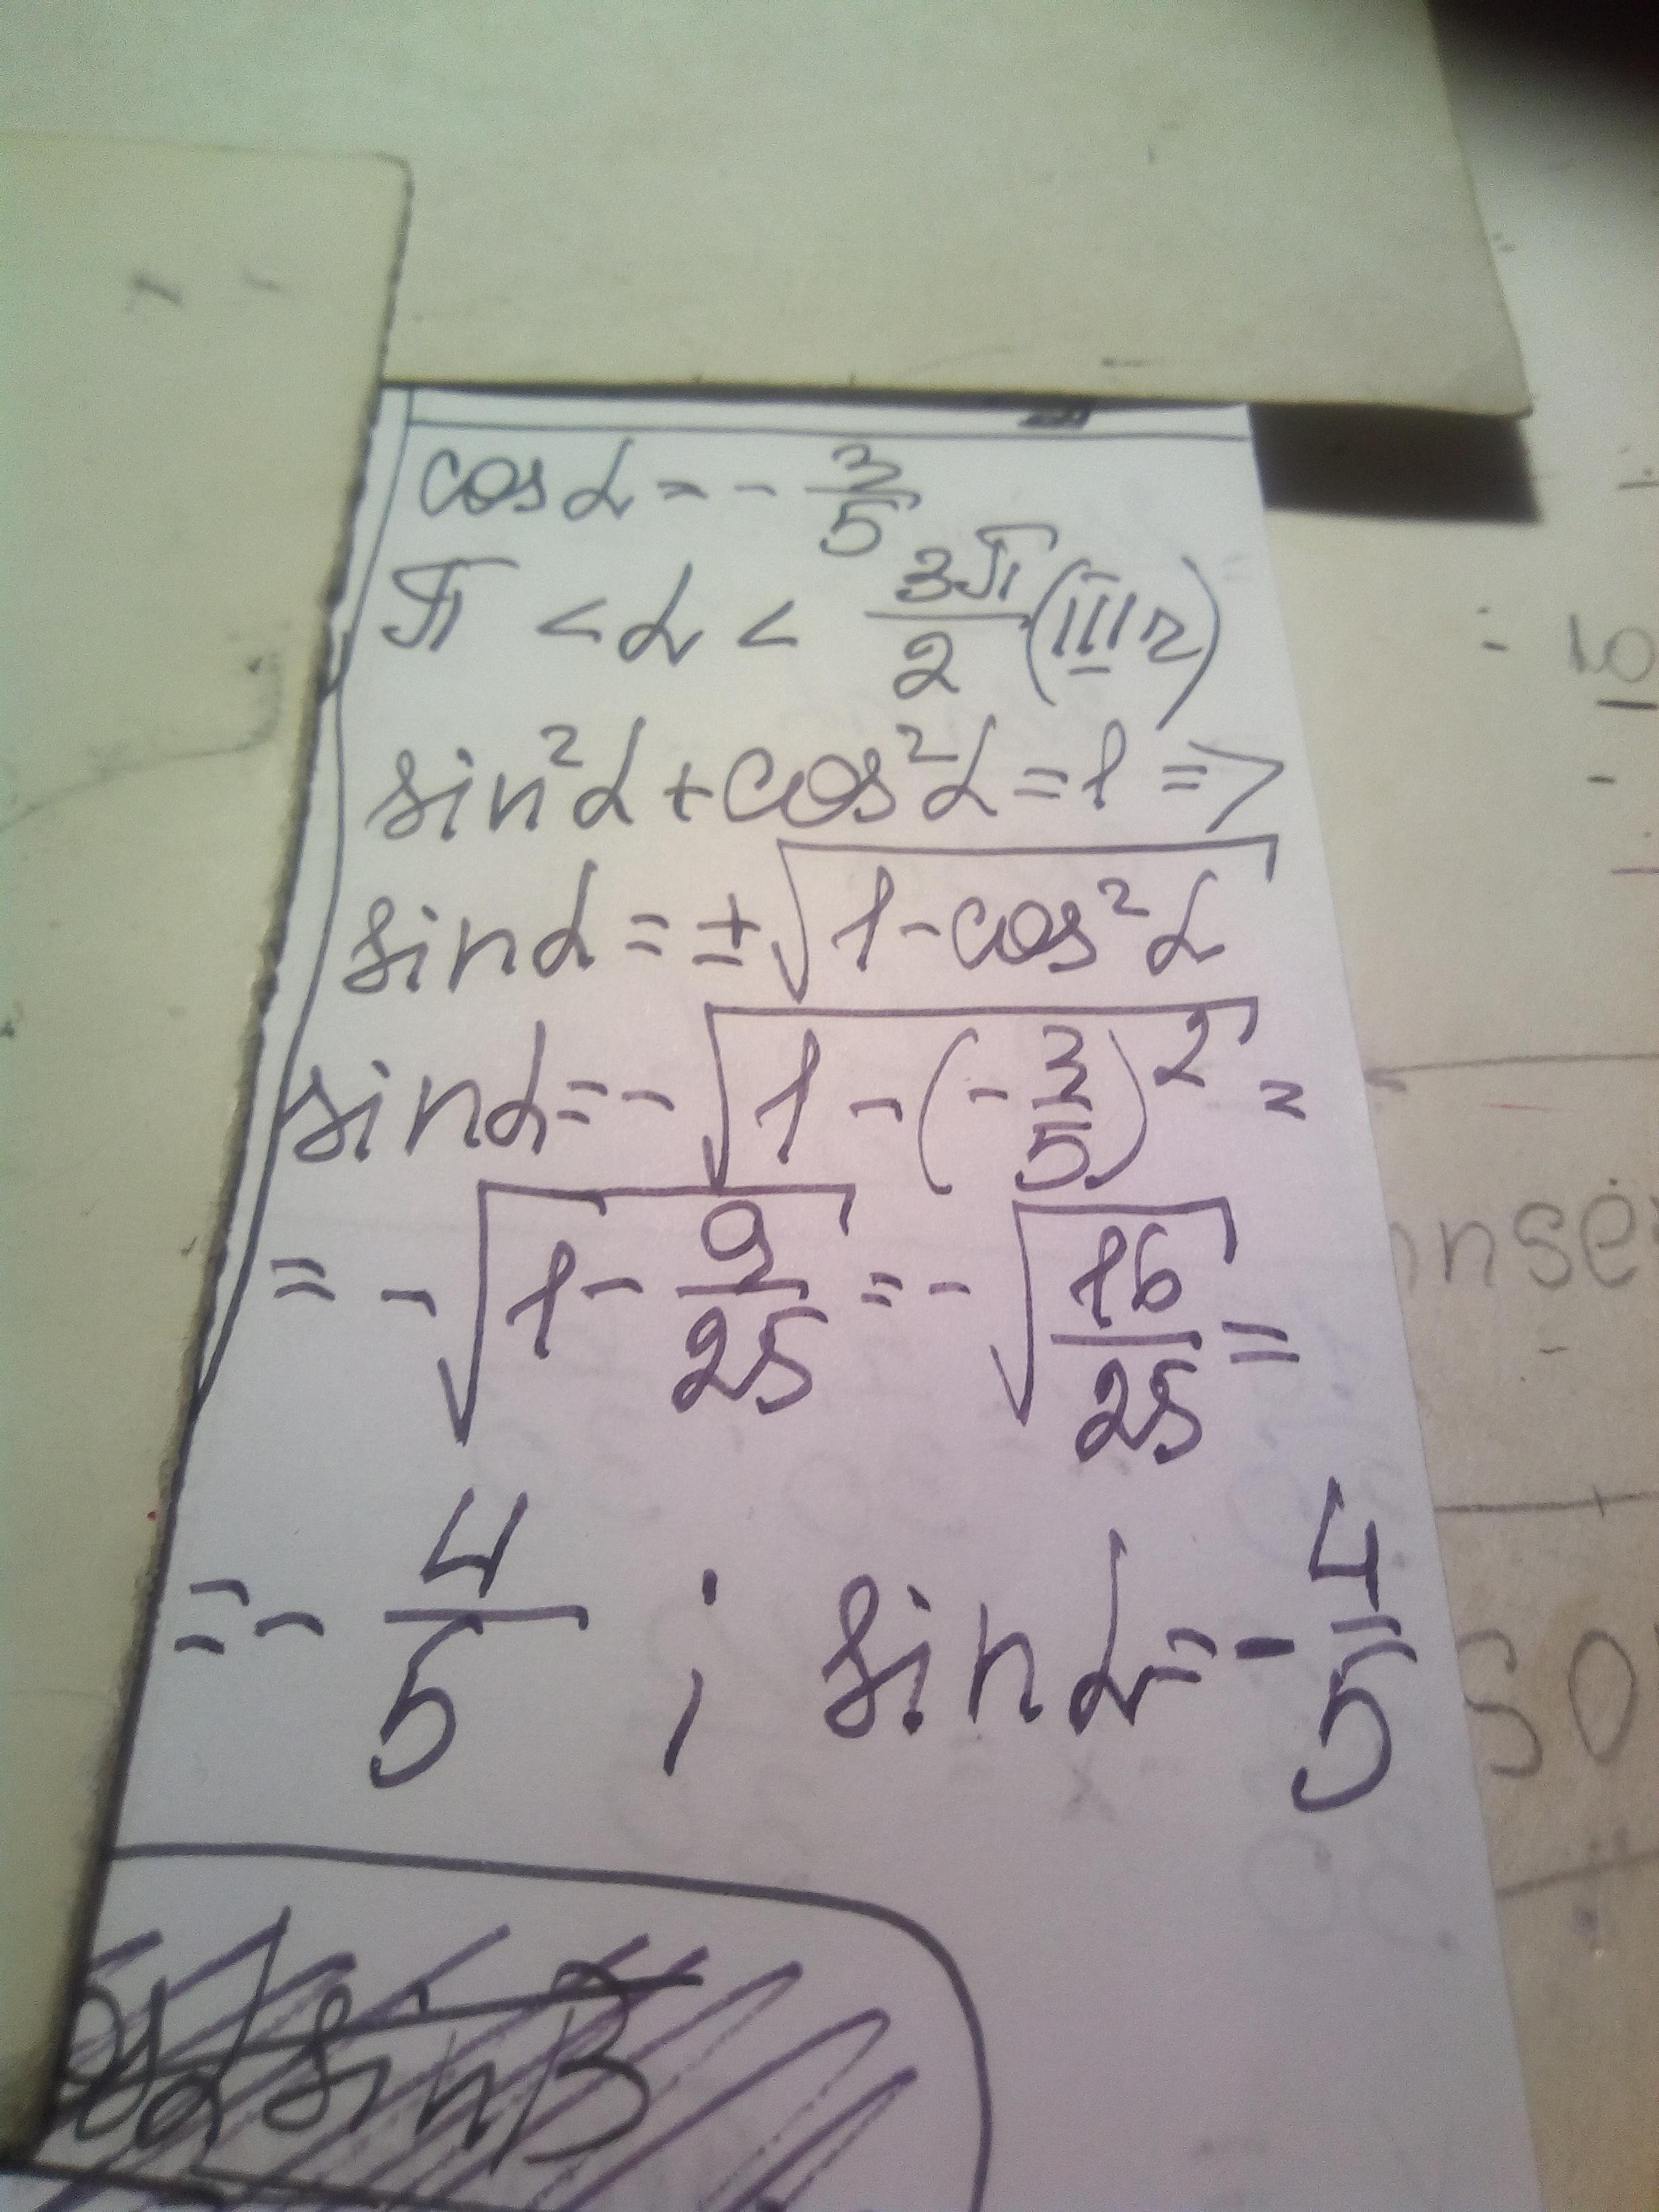 cos α = - 3/5
π < α < 3π/2 (III г)
sin²α + cos²α = 1 =>
sin α = ± √(1 - cos²α)
sin α = - √(1 - (- 3/5)²) =
= - √(1 - 9/25) = - √(16/25) =
= - 4/5 ; sin α = - 4/5